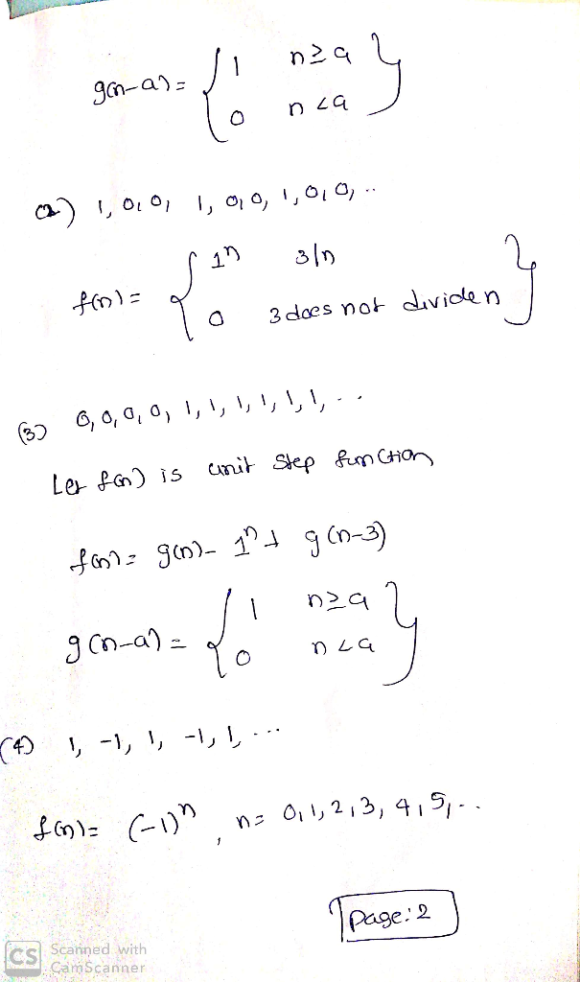 g(n-a) = { 1 n≥a
0 n<a }
(2) 1, 0, 0, 1, 0, 0, 1, 0, 0, ..
f(n) = { 1ⁿ 3/n
0 3 does not divide n }
(3) 0, 0, 0, 0, 1, 1, 1, 1, 1, 1, ...
Let f(n) is unit step function
f(n) = g(n) - 1ⁿ + g(n-3)
g(n-a) = { 1 n≥a
0 n<a }
(4) 1, -1, 1, -1, 1, ...
f(n) = (-1)ⁿ, n = 0, 1, 2, 3, 4, 5, ..
page: 2
CS Scanned with
CamScanner